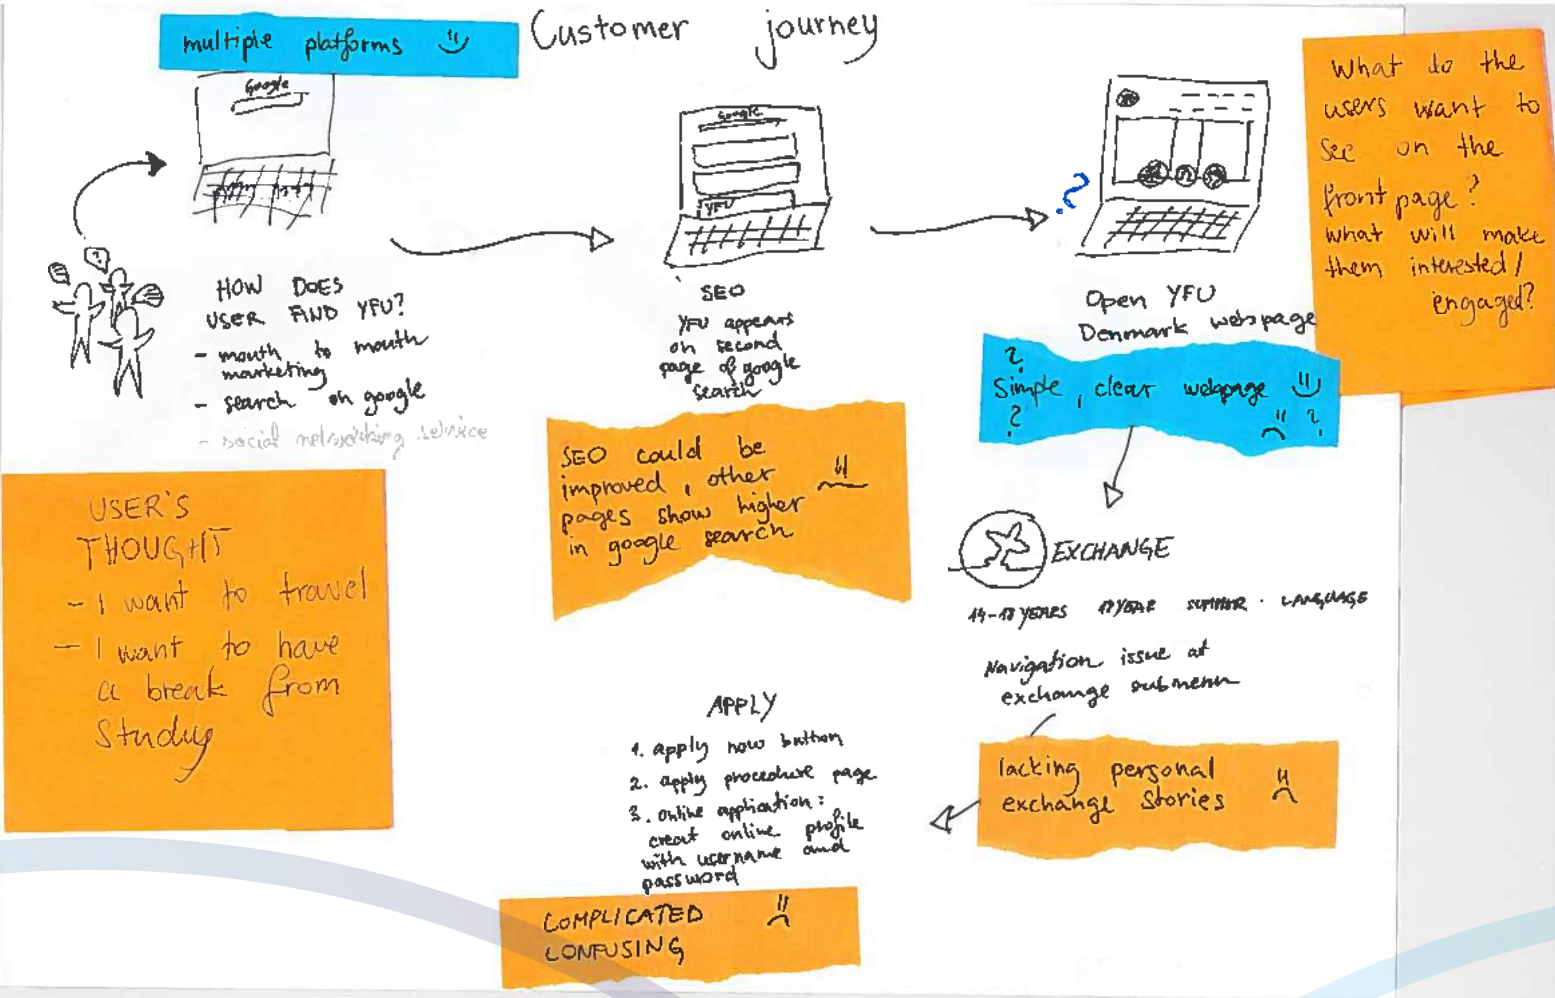 Customer journey
multiple platforms
Google
HOW DOES
USER FIND YFU?
- mouth to mouth
marketing
- search on google
- social networking service
USER'S
THOUGHT
- I want to travel
- I want to have
a break from
Study
Google
YFU
SEO
YFU appears
on second
page of google
search
SEO could be
improved, other
pages show higher
in google search
?
Open YFU
Denmark webpage
?
Simple, clear webpage
? ?
What do the
users want to
see on the
front page?
What will make
them interested/
engaged?
EXCHANGE
14-18 YEARS YEAR SUMMER · LANGUAGE
Navigation issue at
exchange submenu
lacking personal
exchange stories
APPLY
1. apply now button
2. apply procedure page
3. online application:
creat online profile
with username and
password
COMPLICATED
CONFUSING